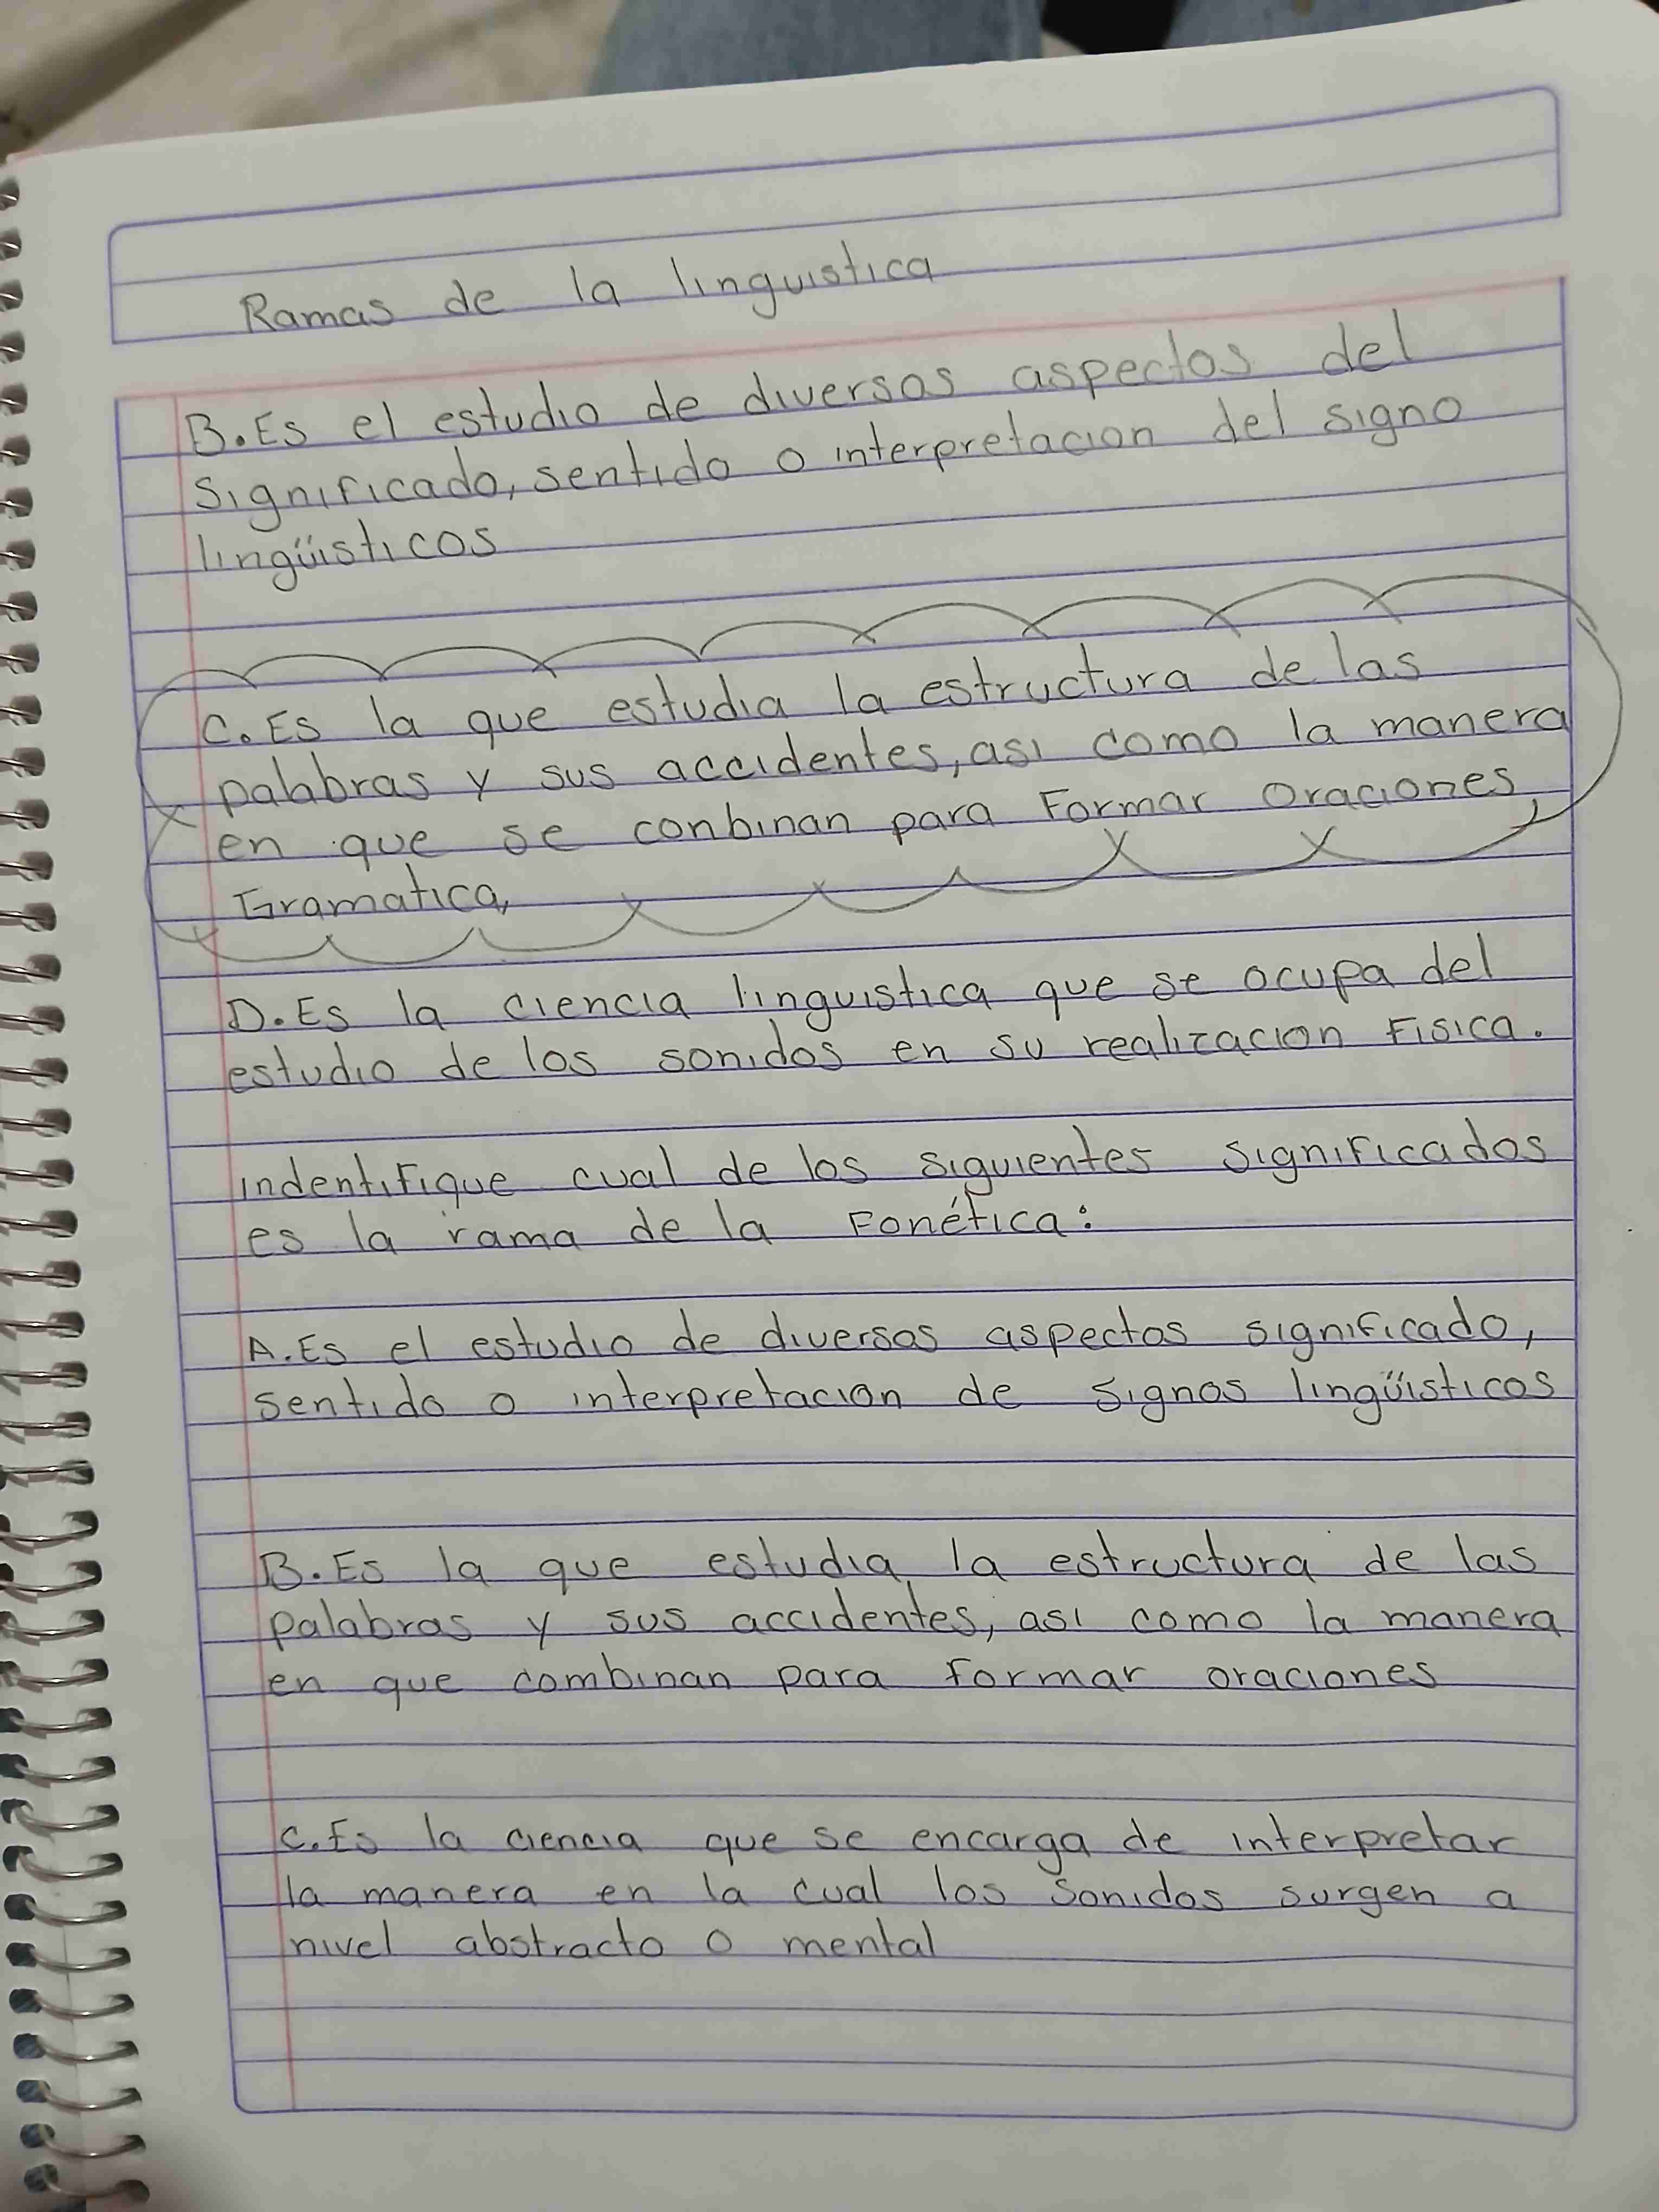 Ramas de la linguistica
B. Es el estudio de diversos aspectos del
significado, sentido o interpretacion del signo
lingüisticos
C. Es la que estudia la estructura de las
palabras y sus accidentes, asi como la manera
en que se conbinan para Formar Oraciones,
Gramatica,
D. Es la ciencia linguistica que se ocupa del
estudio de los sonidos en su realizacion Fisica.
indentifique cual de los siguientes significados
es la rama de la Fonética:
A. Es el estudio de diversos aspectos significado,
sentido o interpretacion de signos lingüisticos
B. Es la que estudia la estructura de las
palabras y sus accidentes, asi como la manera
en que combinan para formar oraciones
C. Es la ciencia que se encarga de interpretar
la manera en la cual los sonidos surgen a
nivel abstracto o mental